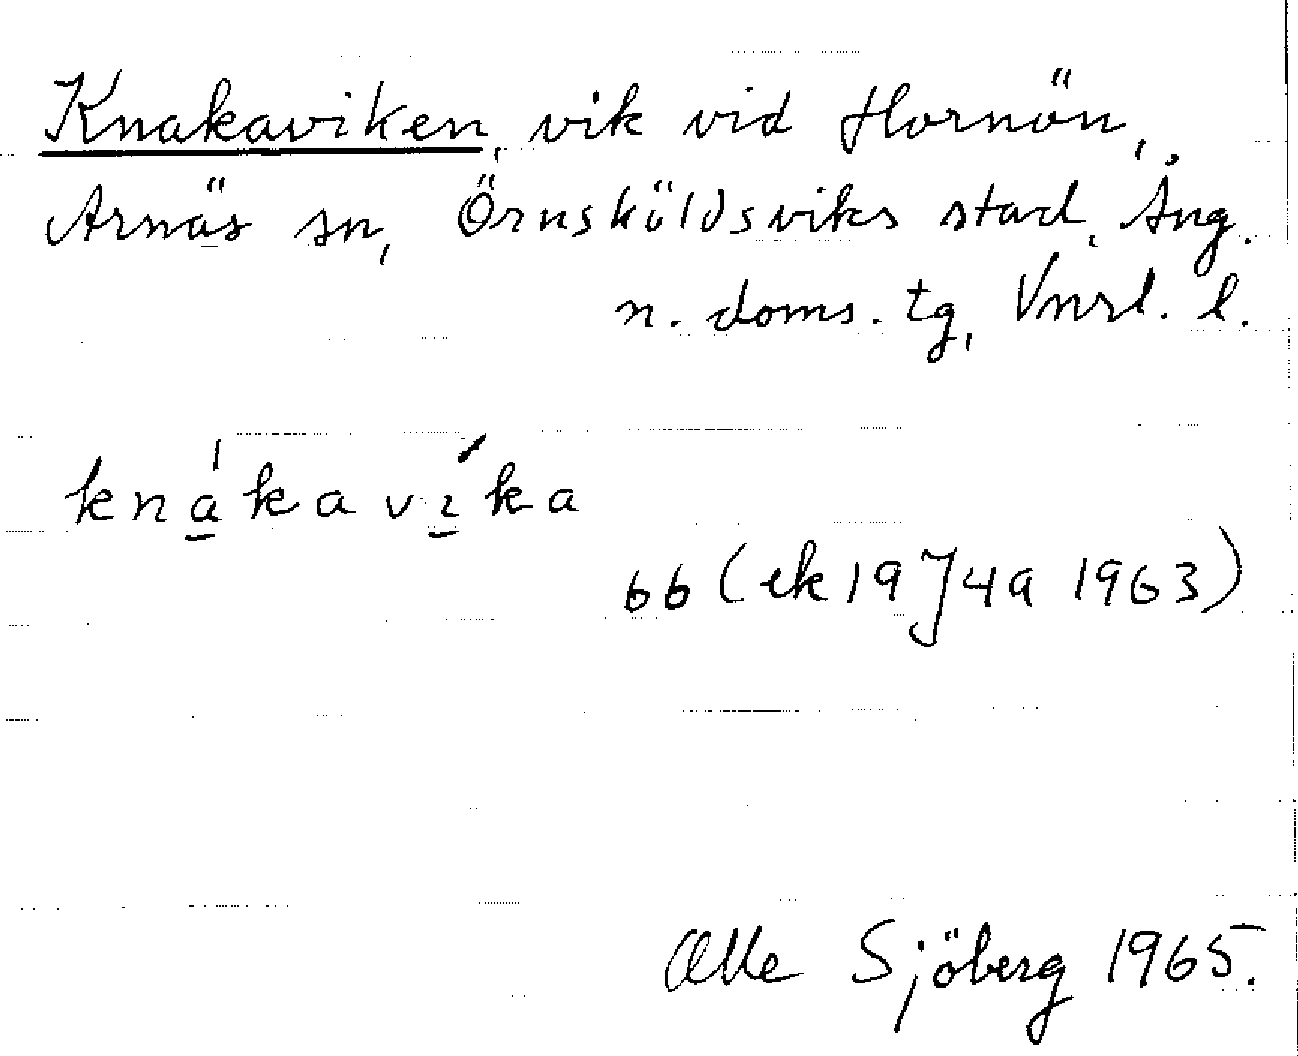 Knakaviken, vik vid Hornön,
Arnäs sn, Örnsköldsviks stad, Ång.
n. doms. tg, Vnrl. l.
knákavíka
66 (ek 19 J 4a 1963)
Olle Sjöberg 1965.